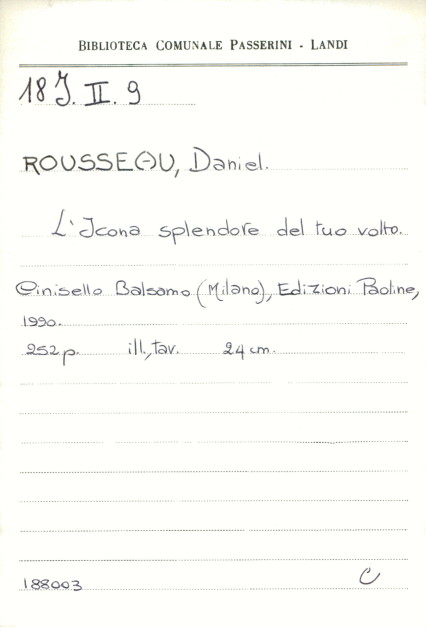 BIBLIOTECA COMUNALE PASSERINI - LANDI
18 J. II. 9
ROUSSEAU, Daniel.
L'Icona splendore del tuo volto.
Cinisello Balsamo (Milano), Edizioni Paoline,
1990.
252 p. ill., tav. 24 cm.
188003 C